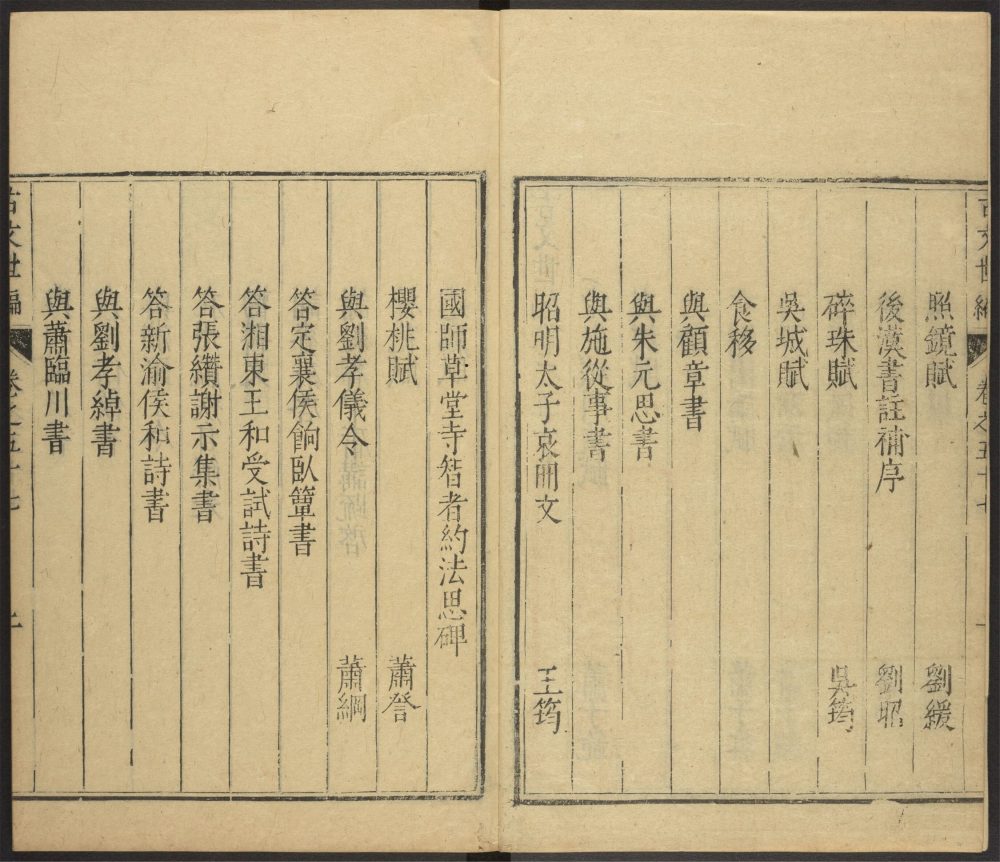 古文世編 卷之五十七 一
照鏡賦 劉緩
後漢書註補序 劉昭
碎珠賦 吳筠
吳城賦
食移
與顧章書
與朱元思書
與施從事書
昭明太子哀冊文 王筠
國師草堂寺智者約法思碑
櫻桃賦 蕭詧
與劉孝儀令 蕭綱
答定襄侯餉臥簟書
答湘東王和受試詩書
答張纘謝示集書
答新渝侯和詩書
與劉孝綽書
與蕭臨川書
古文世編 卷之五十七 二